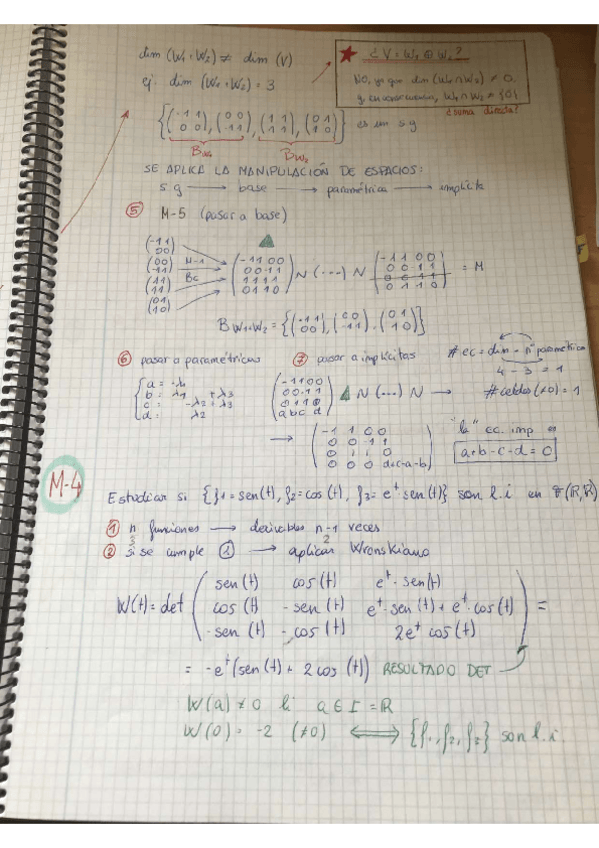 dim (W₁+W₂) ≠ dim (V)
ej. dim (W₁+W₂) = 3
★ ¿V = W₁ ⊕ W₂?
No, ya que dim (W₁∩W₂) ≠ 0.
y, en consecuencia, W₁∩W₂ ≠ {0}
¿suma directa?
{(-1 1 / 0 0), (0 0 / -1 1), (1 1 / 1 1), (0 1 / 1 0)} es un s g
B_W₁ B_W₂
SE APLICA LA MANIPULACIÓN DE ESPACIOS:
s g → base → paramétrica → implícita
⑤ M-5 (pasar a base)
(-1 1 / 0 0)
(0 0 / -1 1)
(1 1 / 1 1)
(0 1 / 1 0)
M-1
Bc
(-1 1 0 0 / 0 0 -1 1 / 1 1 1 1 / 0 1 1 0) N (...) N (-1 1 0 0 / 0 0 -1 1 / 0 0 1 1 / 0 1 1 0) = M
B W₁+W₂ = {(-1 1 / 0 0), (0 0 / -1 1), (0 1 / 1 0)}
⑥ pasar a paramétricas
a = -λ₁
b = λ₁ + λ₃
c = -λ₂ + λ₃
d = λ₂
⑦ pasar a implícitas
# ec = dim - nº paramétrica
4 - 3 = 1
(-1 1 0 0 / 0 0 -1 1 / 0 1 1 0 / a b c d) N (...) N → # celdas (≠0) = 1
→ (-1 1 0 0 / 0 0 -1 1 / 0 1 1 0 / 0 0 0 d+c-a-b)
"la" ec. imp es
a+b-c-d=0
M-4
Estudiar si {f₁=sen(t), f₂=cos(t), f₃=eᵗ·sen(t)} son l.i en F(R,R)
① n funciones → derivables n-1 veces
3 2
② si se cumple ① → aplicar Wronskiano
W(t) = det (sen(t) cos(t) eᵗ·sen(t)
cos(t) -sen(t) eᵗ·sen(t)+eᵗ·cos(t)
-sen(t) -cos(t) 2eᵗ cos(t)) =
= -eᵗ(sen(t) + 2cos(t)) RESULTADO DET
W(a) ≠ 0 li a ∈ I = R
W(0) = -2 (≠0) ⟺ {f₁, f₂, f₃} son l.i.